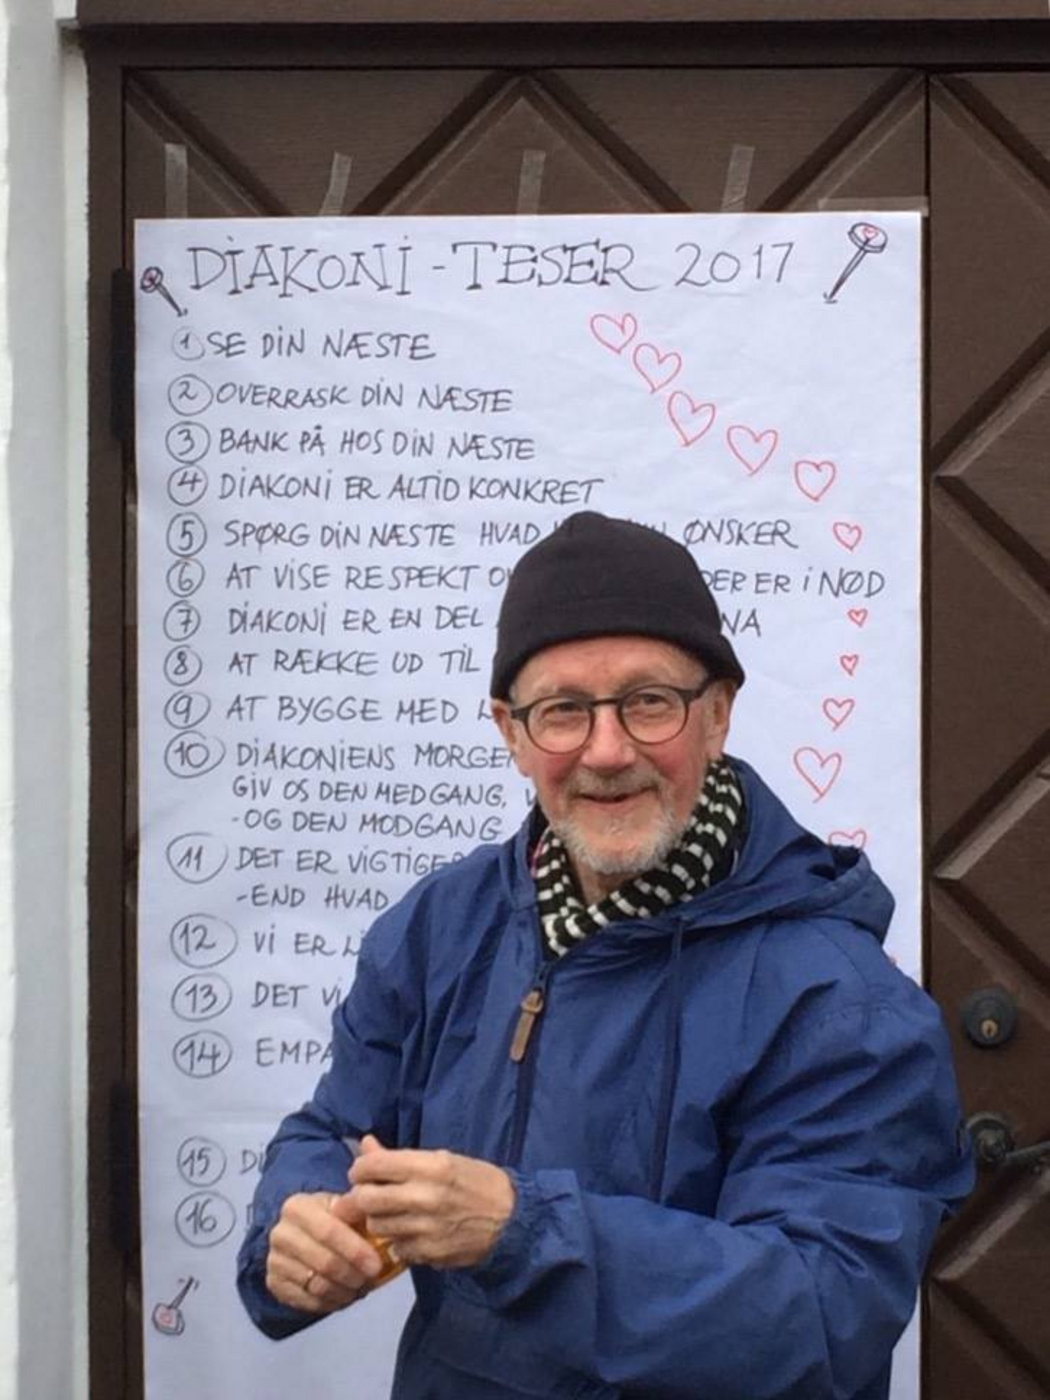 DIAKONI - TESER 2017
1 SE DIN NÆSTE
2 OVERRASK DIN NÆSTE
3 BANK PÅ HOS DIN NÆSTE
4 DIAKONI ER ALTID KONKRET
5 SPØRG DIN NÆSTE HVAD ØNSKER
6 AT VISE RESPEKT DER ER I NØD
7 DIAKONI ER EN DEL
8 AT RÆKKE UD TIL
9 AT BYGGE MED
10 DIAKONIENS
GIV OS DEN MEDGANG,
-OG DEN MODGANG
11 DET ER
-END HVAD
12 VI ER
13 DET
14
15
16